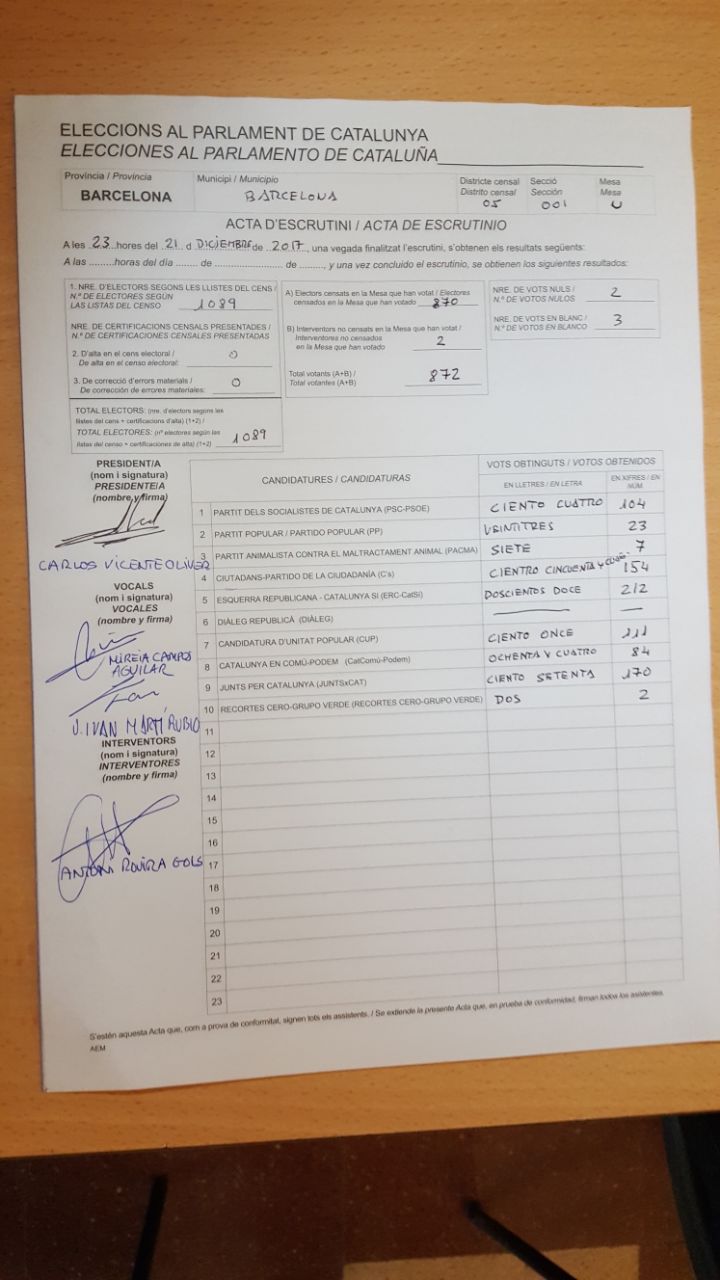 ELECCIONS AL PARLAMENT DE CATALUNYA
ELECCIONES AL PARLAMENTO DE CATALUÑA
Província / Provincia
BARCELONA
Municipi / Municipio
BARCELONA
Districte censal
Distrito censal
05
Secció
Sección
001
Mesa
Mesa
U
ACTA D'ESCRUTINI / ACTA DE ESCRUTINIO
A les 23 hores del 21 d DICIEMBRE de 2017, una vegada finalitzat l'escrutini, s'obtenen els resultats següents:
A las .........horas del día ....... de .................... de ........, y una vez concluido el escrutinio, se obtienen los siguientes resultados:
1. NRE. D'ELECTORS SEGONS LES LLISTES DEL CENS /
N.º DE ELECTORES SEGÚN
LAS LISTAS DEL CENSO 1089
NRE. DE CERTIFICACIONS CENSALS PRESENTADES /
N.º DE CERTIFICACIONES CENSALES PRESENTADAS
2. D'alta en el cens electoral /
De alta en el censo electoral: 0
3. De correcció d'errors materials /
De corrección de errores materiales: 0
TOTAL ELECTORS: (nre. d'electors segons les
llistes del cens + certificacions d'alta) (1+2) /
TOTAL ELECTORES: (nº electores según las
listas del censo + certificaciones de alta) (1+2) 1089
A) Electors censats en la Mesa que han votat / Electores
censados en la Mesa que han votado 870
B) Interventors no censats en la Mesa que han votat /
Interventores no censados
en la Mesa que han votado 2
Total votants (A+B) /
Total votantes (A+B) 872
NRE. DE VOTS NULS /
N.º DE VOTOS NULOS 2
NRE. DE VOTS EN BLANC /
N.º DE VOTOS EN BLANCO 3
PRESIDENT/A
(nom i signatura)
PRESIDENTE/A
(nombre y firma)
CARLOS VICENTE OLIVER
VOCALS
(nom i signatura)
VOCALES
(nombre y firma)
MIREIA CAMPS
AGUILAR
J. IVAN MARTÍ RUBIO
INTERVENTORS
(nom i signatura)
INTERVENTORES
(nombre y firma)
ANTONI ROVIRA GOLS
CANDIDATURES / CANDIDATURAS
VOTS OBTINGUTS / VOTOS OBTENIDOS
EN LLETRES / EN LETRA
EN XIFRES / EN NÚM.
1 PARTIT DELS SOCIALISTES DE CATALUNYA (PSC-PSOE) CIENTO CUATRO 104
2 PARTIT POPULAR / PARTIDO POPULAR (PP) VEINTITRES 23
3 PARTIT ANIMALISTA CONTRA EL MALTRACTAMENT ANIMAL (PACMA) SIETE 7
4 CIUTADANS-PARTIDO DE LA CIUDADANÍA (C's) CIENTRO CINCUENTA Y 154
5 ESQUERRA REPUBLICANA - CATALUNYA SÍ (ERC-CatSí) DOSCIENTOS DOCE 212
6 DIÀLEG REPUBLICÀ (DIÀLEG) — —
7 CANDIDATURA D'UNITAT POPULAR (CUP) CIENTO ONCE 111
8 CATALUNYA EN COMÚ-PODEM (CatComú-Podem) OCHENTA Y CUATRO 84
9 JUNTS PER CATALUNYA (JUNTSxCAT) CIENTO SETENTA 170
10 RECORTES CERO-GRUPO VERDE (RECORTES CERO-GRUPO VERDE) DOS 2
11
12
13
14
15
16
17
18
19
20
21
22
23
S'estén aquesta Acta que, com a prova de conformitat, signen tots els assistents. / Se extiende la presente Acta que, en prueba de conformidad, firman todos los asistentes.
AEM